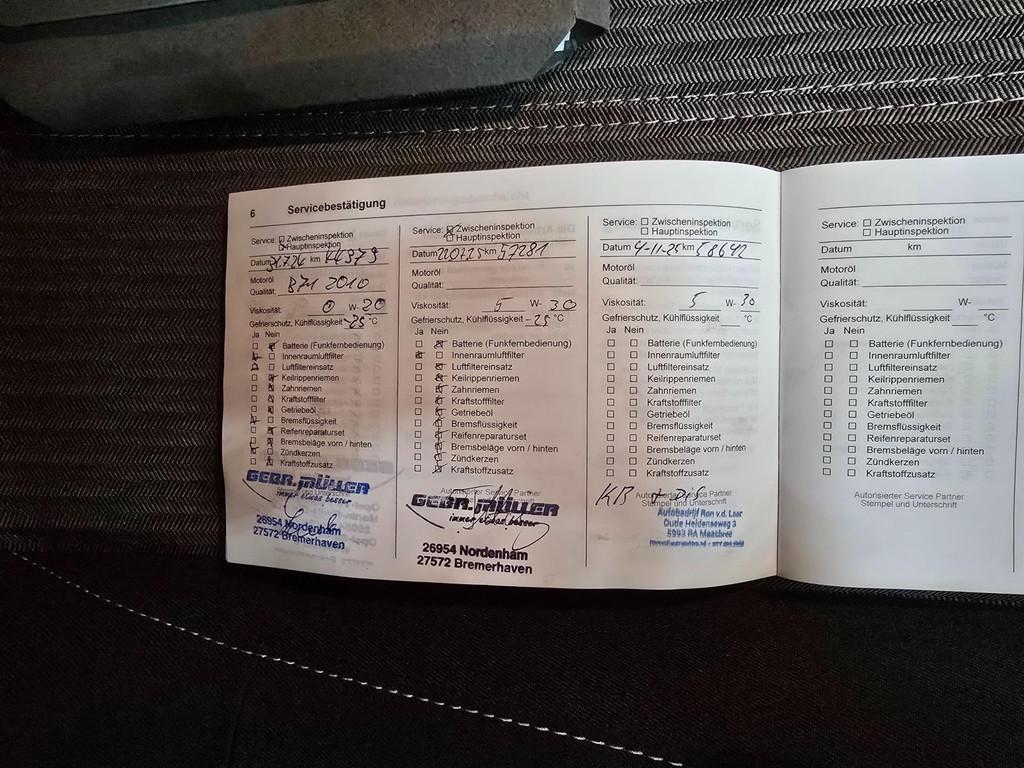 6 Servicebestätigung
Service: ☐ Zwischeninspektion
☒ Hauptinspektion
Datum 31.7.24 km 44979
Motoröl
Qualität: B71 2010
Viskosität: 0 W- 20
Gefrierschutz, Kühlflüssigkeit -25 °C
Ja Nein
Batterie (Funkfernbedienung)
Innenraumluftfilter
Luftfiltereinsatz
Keilrippenriemen
Zahnriemen
Kraftstofffilter
Getriebeöl
Bremsflüssigkeit
Reifenreparaturset
Bremsbeläge vorn / hinten
Zündkerzen
Kraftstoffzusatz
GEBR. MÜLLER
immer etwas besser
26954 Nordenham
27572 Bremerhaven
Service: ☒ Zwischeninspektion
☐ Hauptinspektion
Datum 220725 km 57281
Motoröl
Qualität:
Viskosität: 5 W- 30
Gefrierschutz, Kühlflüssigkeit -25 °C
Ja Nein
Batterie (Funkfernbedienung)
Innenraumluftfilter
Luftfiltereinsatz
Keilrippenriemen
Zahnriemen
Kraftstofffilter
Getriebeöl
Bremsflüssigkeit
Reifenreparaturset
Bremsbeläge vorn / hinten
Zündkerzen
Kraftstoffzusatz
Autorisierter Service Partner
GEBR. MÜLLER
immer etwas besser
26954 Nordenham
27572 Bremerhaven
Service: ☐ Zwischeninspektion
☐ Hauptinspektion
Datum 4-11-25 km 58642
Motoröl
Qualität:
Viskosität: 5 W- 30
Gefrierschutz, Kühlflüssigkeit °C
Ja Nein
Batterie (Funkfernbedienung)
Innenraumluftfilter
Luftfiltereinsatz
Keilrippenriemen
Zahnriemen
Kraftstofffilter
Getriebeöl
Bremsflüssigkeit
Reifenreparaturset
Bremsbeläge vorn / hinten
Zündkerzen
Kraftstoffzusatz
KB +
Autorisierter Service Partner
Stempel und Unterschrift
Autobedrijf Ron v.d. Laar
Oude Heldenseweg 3
5993 RA Maasbree
Service: ☐ Zwischeninspektion
☐ Hauptinspektion
Datum km
Motoröl
Qualität:
Viskosität: W-
Gefrierschutz, Kühlflüssigkeit °C
Ja Nein
Batterie (Funkfernbedienung)
Innenraumluftfilter
Luftfiltereinsatz
Keilrippenriemen
Zahnriemen
Kraftstofffilter
Getriebeöl
Bremsflüssigkeit
Reifenreparaturset
Bremsbeläge vorn / hinten
Zündkerzen
Kraftstoffzusatz
Autorisierter Service Partner
Stempel und Unterschrift